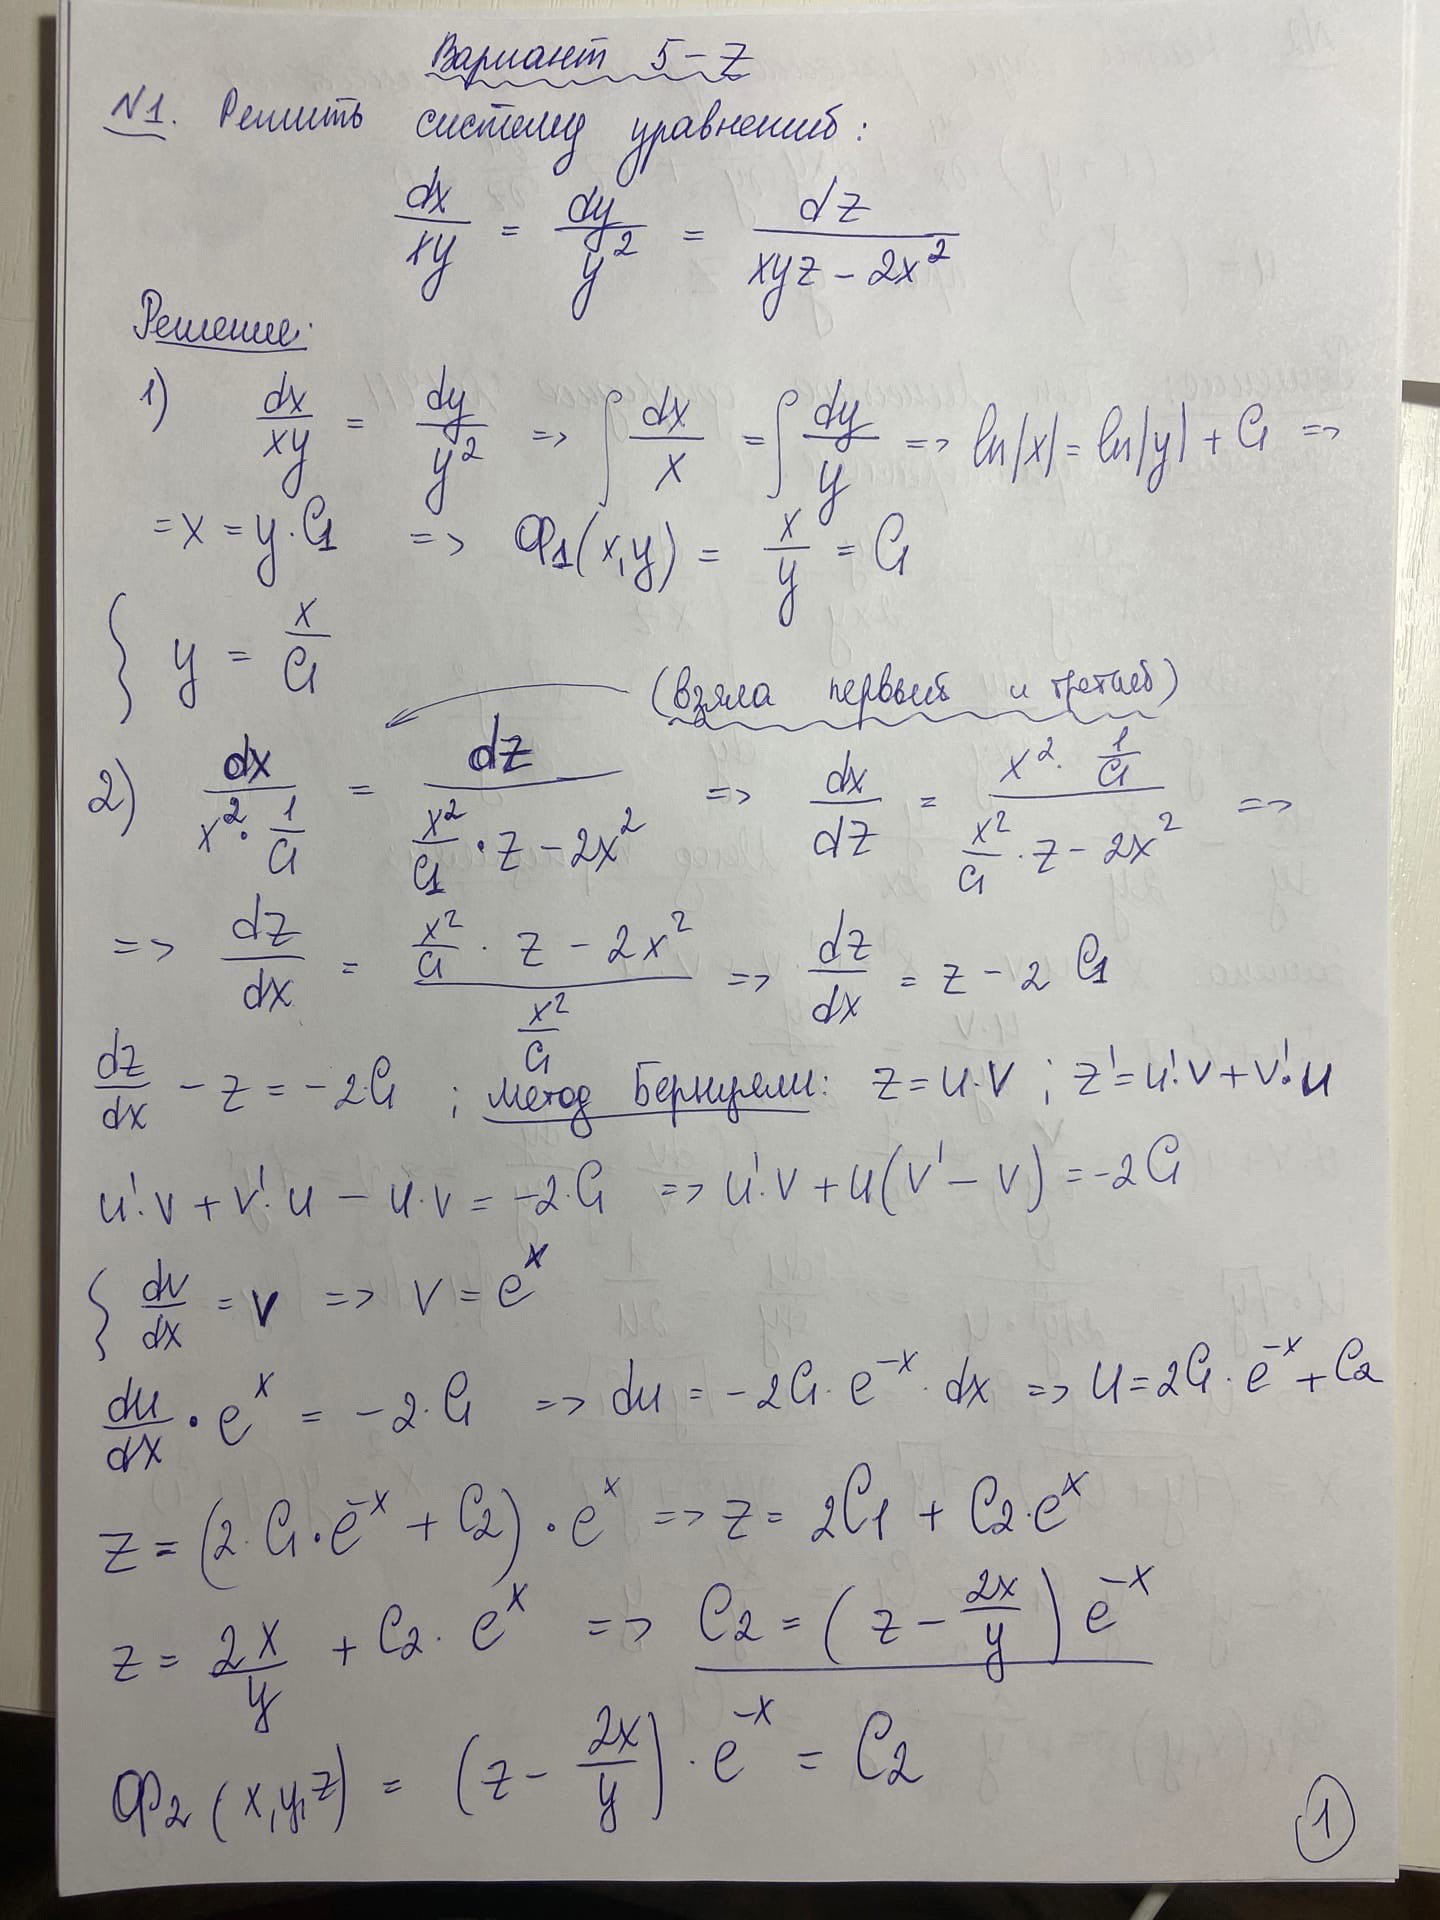 Вариант 5-Z
№1. Решить систему уравнений:
dx/xy = dy/y² = dz/(xyz - 2x²)
Решение:
1) dx/xy = dy/y² => ∫ dx/x = ∫ dy/y => ln|x| = ln|y| + C1 =>
= x = y · C1 => Φ1(x,y) = x/y = C1
{ y = x/C1
(взяла первый и третий)
2) dx/(x² · 1/C1) = dz/(x²/C1 · z - 2x²) => dx/dz = (x² · 1/C1)/(x²/C1 · z - 2x²) =>
=> dz/dx = (x²/C1 · z - 2x²)/(x²/C1) => dz/dx = z - 2 C1
dz/dx - z = -2C1 ; метод Бернулли: z = u·v ; z' = u'·v + v'·u
u'·v + v'·u - u·v = -2·C1 => u'·v + u(v' - v) = -2C1
{ dv/dx = v => v = e^x
du/dx · e^x = -2·C1 => du = -2C1 · e^-x · dx => u = 2C1 · e^-x + C2
z = (2·C1·e^-x + C2) · e^x => z = 2C1 + C2·e^x
z = 2x/y + C2 · e^x => C2 = (z - 2x/y) e^-x
Φ2(x,y,z) = (z - 2x/y) · e^-x = C2
1